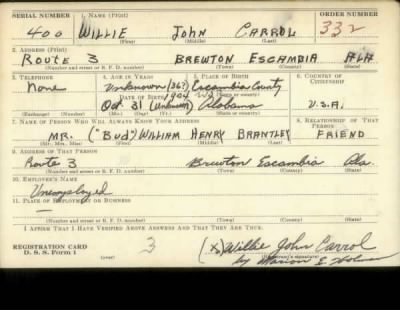 SERIAL NUMBER 1. NAME (Print) ORDER NUMBER
400 WILLIE JOHN CARROL 332
(First) (Middle) (Last)
2. ADDRESS (Print)
ROUTE 3 BREWTON ESCAMBIA ALA
(Number and street or R. F. D. number) (Town) (County) (State)
3. TELEPHONE 4. AGE IN YEARS 5. PLACE OF BIRTH 6. COUNTRY OF CITIZENSHIP
None Unknown (36?) Escambia County
DATE OF BIRTH 1904
Oct 31 (Unknown) Alabama U.S.A.
(Exchange) (Number) (Mo.) (Day) (Yr.) (State or country)
7. NAME OF PERSON WHO WILL ALWAYS KNOW YOUR ADDRESS 8. RELATIONSHIP OF THAT PERSON
MR. ("Bud") WILLIAM HENRY BRANTLEY FRIEND
(Mr., Mrs., Miss) (First) (Middle) (Last)
9. ADDRESS OF THAT PERSON
Route 3 Brewton Escambia Ala.
(Number and street or R. F. D. number) (Town) (County) (State)
10. EMPLOYER'S NAME
Unemployed
11. PLACE OF EMPLOYMENT OR BUSINESS
—
(Number and street or R. F. D. number) (Town) (County) (State)
I AFFIRM THAT I HAVE VERIFIED ABOVE ANSWERS AND THAT THEY ARE TRUE.
REGISTRATION CARD 3 (X) Willie John Carrol
D. S. S. Form 1 (over) (Registrant's signature)
by Marion E